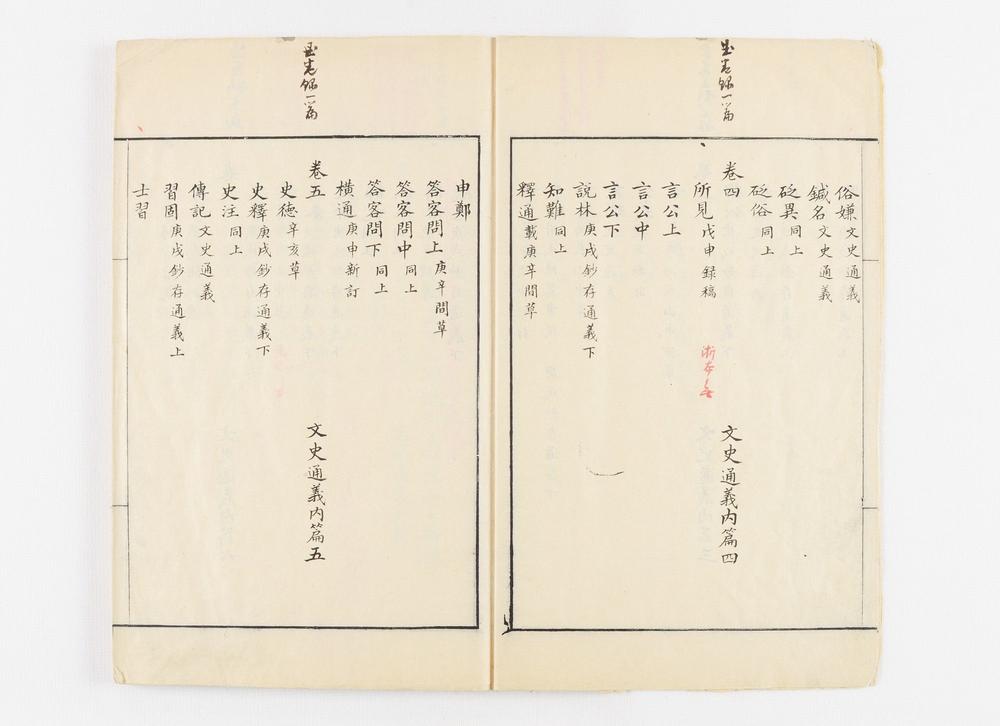 俗嫌 文史通義
鍼名 文史通義
砭異 同上
砭俗 同上
卷四 文史通義內篇四
所見 戊申録稿 浙本無
言公上
言公中
言公下
説林 庚戌鈔存通義下
知難 同上
釋通 載庚辛間草
申鄭
答客問上 庚辛間草
答客問中 同上
答客問下 同上
橫通 庚申新訂
卷五 文史通義內篇五
史德 辛亥草
史釋 庚戌鈔存通義下
史注 同上
傳記 文史通義
習固 庚戌鈔存通義上
士習